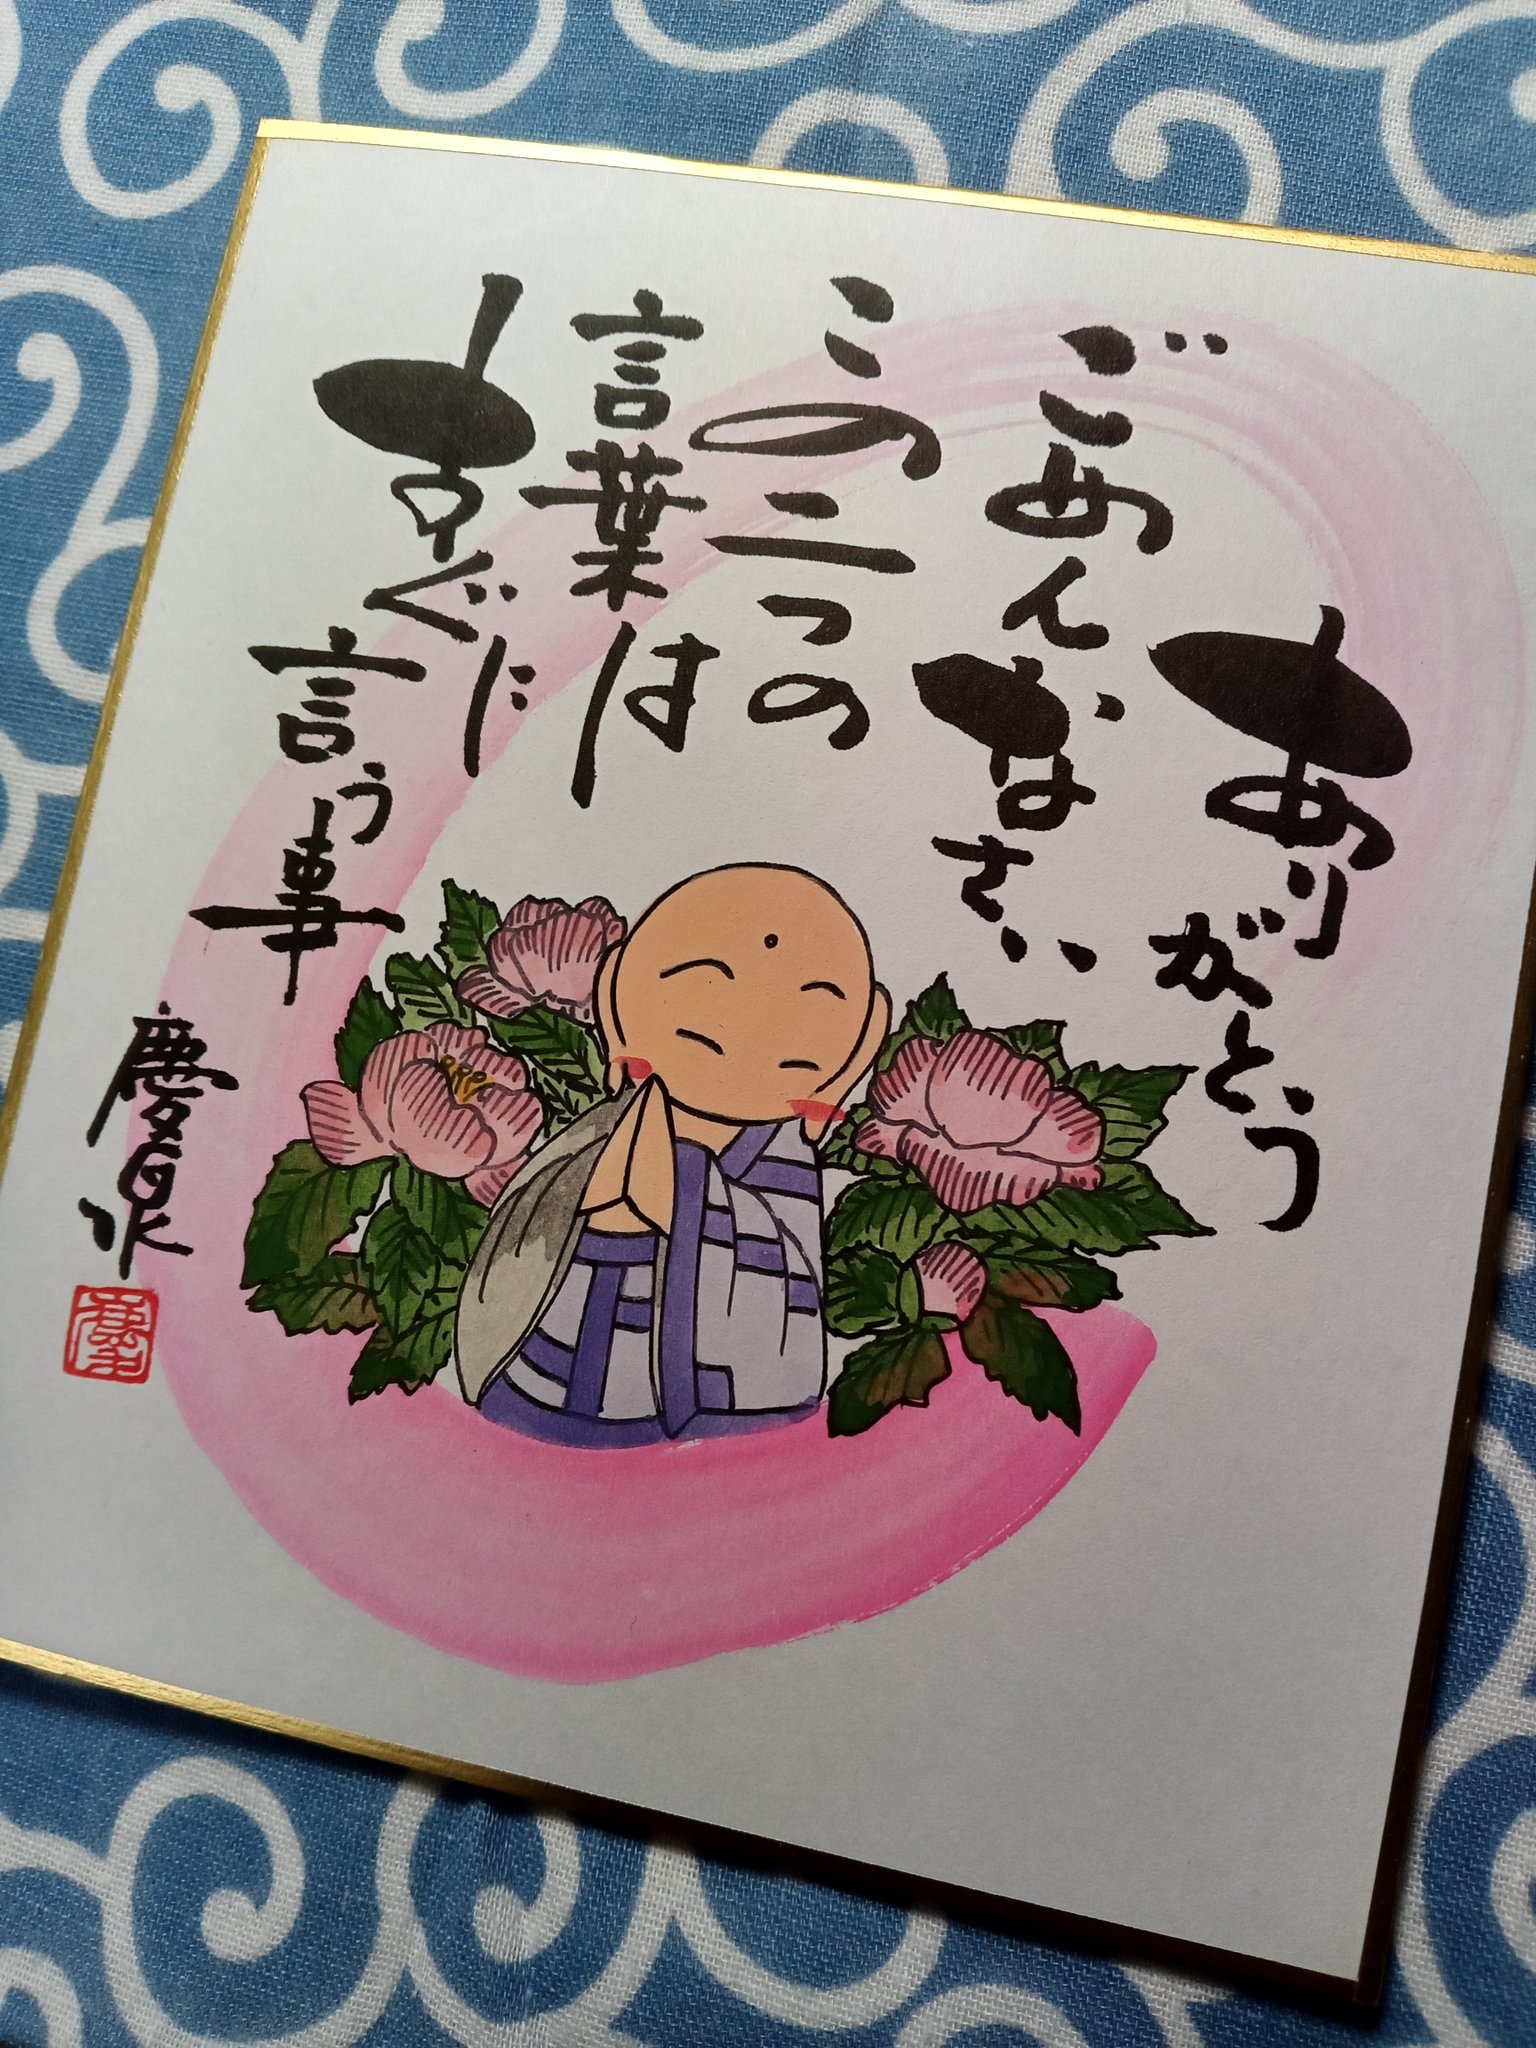 ありがとう
ごめんなさい
この二つの
言葉は
すぐに
言う事
慶泉